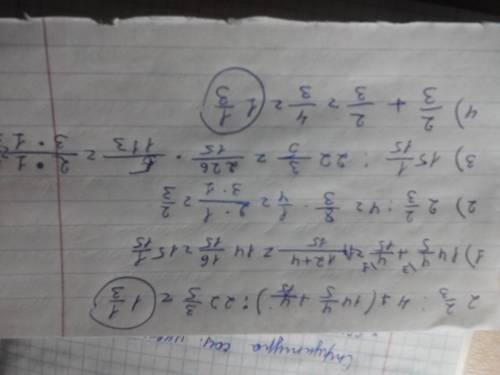 Структура соц
2 2/3 : 4 + (14 4/5 + 4/15) : 22 3/5 = 1 1/3
1) 14 4/5\3 + 4/15\1 = 14 12+4/15 = 14 16/15 = 15 1/15
2) 2 2/3 : 4 = 8/3 · 1/4 = 2·1/3·1 = 2/3
3) 15 1/15 : 22 3/5 = 226/15 · 5/113 = 2·1/3·1 =
4) 2/3 + 2/3 = 4/3 = 1 1/3